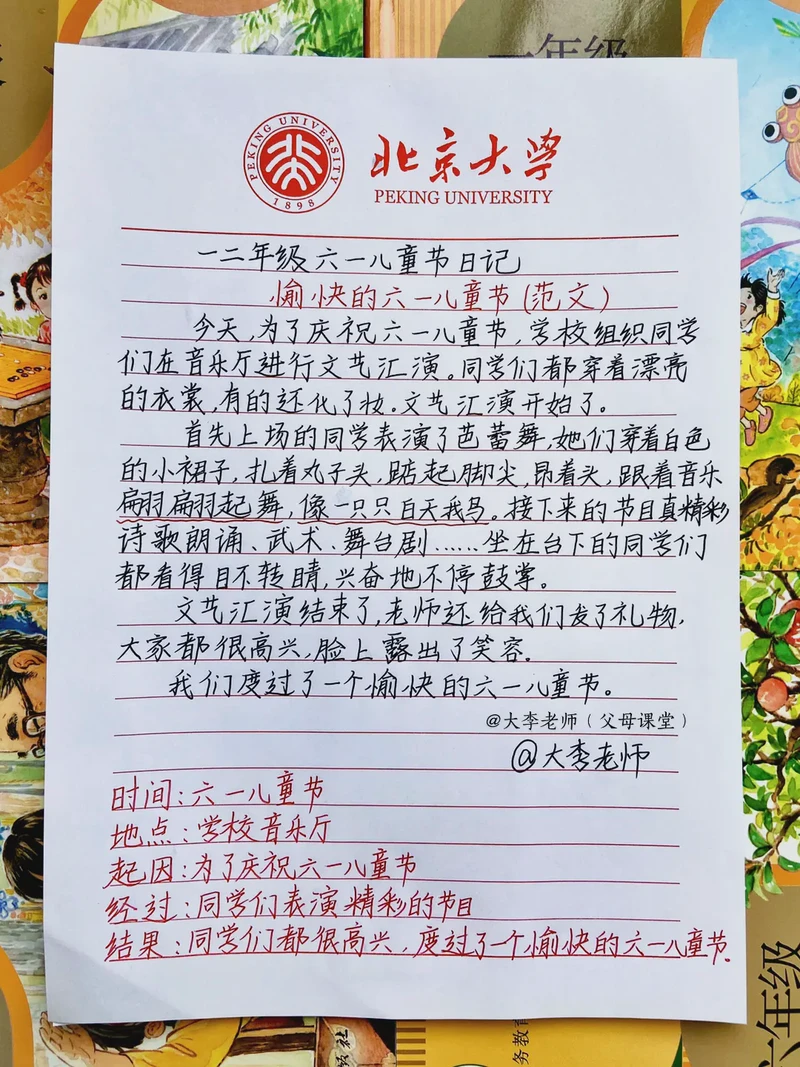 一年级
PEKING UNIVERSITY
1898
北京大学
PEKING UNIVERSITY
一二年级六一儿童节日记
愉快的六一儿童节(范文)
今天,为了庆祝六一儿童节,学校组织同学
们在音乐厅进行文艺汇演。同学们都穿着漂亮
的衣裳,有的还化了妆.文艺汇演开始了。
首先上场的同学表演了芭蕾舞,她们穿着白色
的小裙子,扎着丸子头,踮起脚尖,昂着头,跟着音乐
翩翩起舞,像一只只白天鹅。接下来的节目真精彩
诗歌朗诵、武术、舞台剧……坐在台下的同学们
都看得目不转睛,兴奋地不停鼓掌。
文艺汇演结束了,老师还给我们发了礼物,
大家都很高兴,脸上露出了笑容.
我们度过了一个愉快的六一儿童节。
@大李老师(父母课堂)
@大李老师
时间:六一儿童节
地点:学校音乐厅
起因:为了庆祝六一儿童节
经过:同学们表演精彩的节目
结果:同学们都很高兴,度过了一个愉快的六一儿童节.
六年级
务教育